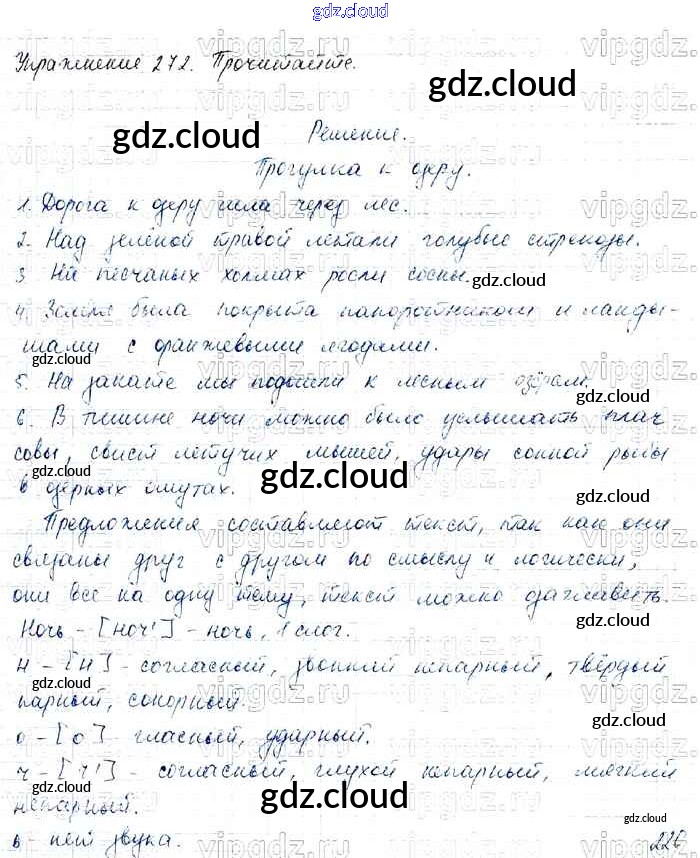 gdz.cloud
Упражнение 272. Прочитайте.
gdz.cloud
gdz.cloud
Решение.
Прогулка к озеру.
1. Дорога к озеру шла через лес.
2. Над зелёной травой летали голубые стрекозы.
3. На песчаных холмах росли сосны.
gdz.cloud
4. Земля была покрыта папоротником и ланды-
шами с оранжевыми ягодами.
gdz.cloud
5. На закате мы подошли к лесным озёрам.
gdz.cloud
6. В тишине ночи можно было услышать плач
совы, свист летучих мышей, удары сонной рыбы
gdz.cloud
gdz.cloud
gdz.cloud
в озёрных омутах.
gdz.cloud
Предложения составляют текст, так как они
связаны друг с другом по смыслу и логически,
они все на одну тему, текст можно озаглавить.
gdz.cloud
gdz.cloud
Ночь - [ноч'] - ночь, 1 слог.
н - [н] - согласный, звонкий непарный, твёрдый
gdz.cloud
парный, сонорный.
gdz.cloud
о - [о] - гласный, ударный.
ч - [ч'] - согласный, глухой непарный, мягкий
gdz.cloud
gdz.cloud
непарный.
gdz.cloud
ь - нет звука.
226